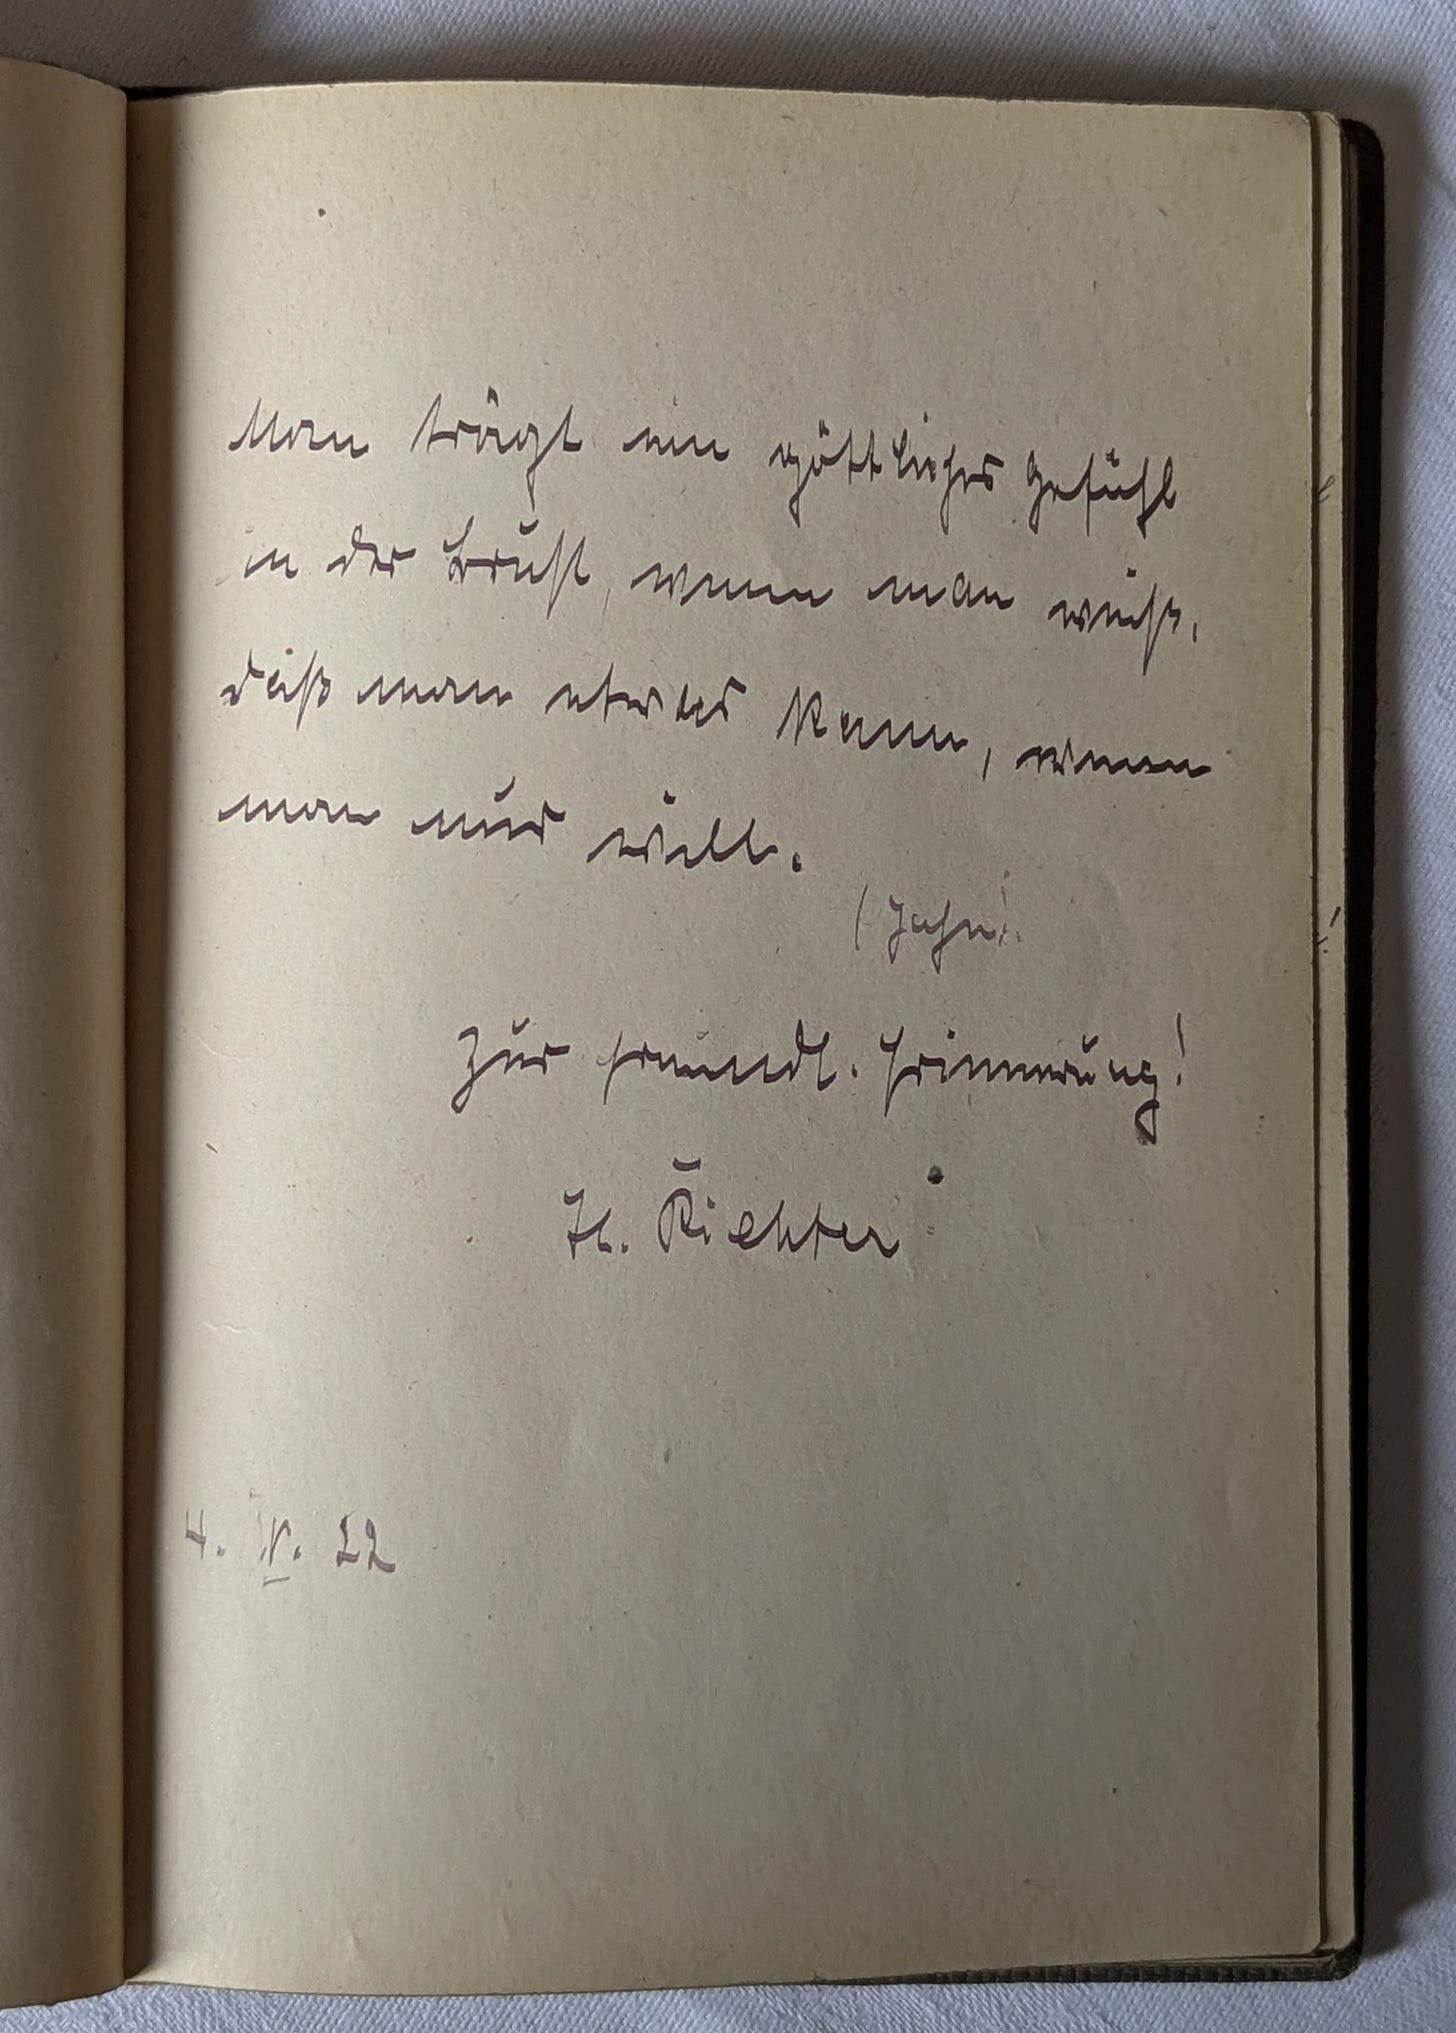 Man trägt ein göttliches Gefühl
in der Brust, wenn man weiß,
daß man etwas kann, wenn
man nur will.
(Jahn).
Zur freundl. Erinnerung!
H. Richter
4. IV. 22